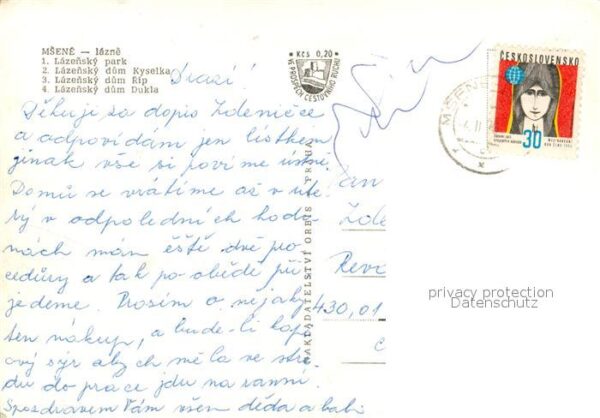 MŠENÉ — lázně
1. Lázeňský park
2. Lázeňský dům Kyselka
3. Lázeňský dům Říp
4. Lázeňský dům Dukla
Kčs 0,20
VE PROSPĚCH CESTOVNÍHO RUCHU
ČESKOSLOVENSKO
30
MŠENÉ
NAKLADATELSTVÍ ORBIS PRAHA
Drazí!
Děkuji za dopis Zdeničce
a odpovídám jen lístkem
jinak vše si povíme ústně.
Domů se vrátíme až v úte-
rý v odpoledních hodi-
nách mám éště dvě pro-
cedury a tak po obědě při-
jedeme. Prosím o nějaký
ten nákup, a bude-li kap-
ový sýr abych měla ve stře-
du do práce jdu na ranní.
Spozdravem Vám všem děda a babi
Pan
Zde
Revo
430,01
privacy protection
Datenschutz